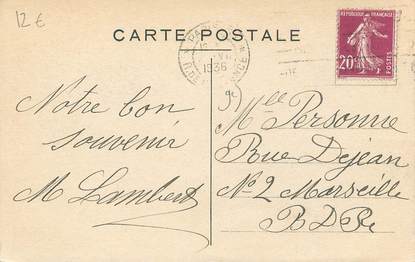 12€
CARTE POSTALE
PARIS
1936
RÉPUBLIQUE FRANÇAISE
20c
POSTES
9c
Notre bon
souvenir
M Lambert
Mlle Personne
Rue Dejean
No 2 Marseille
B D R